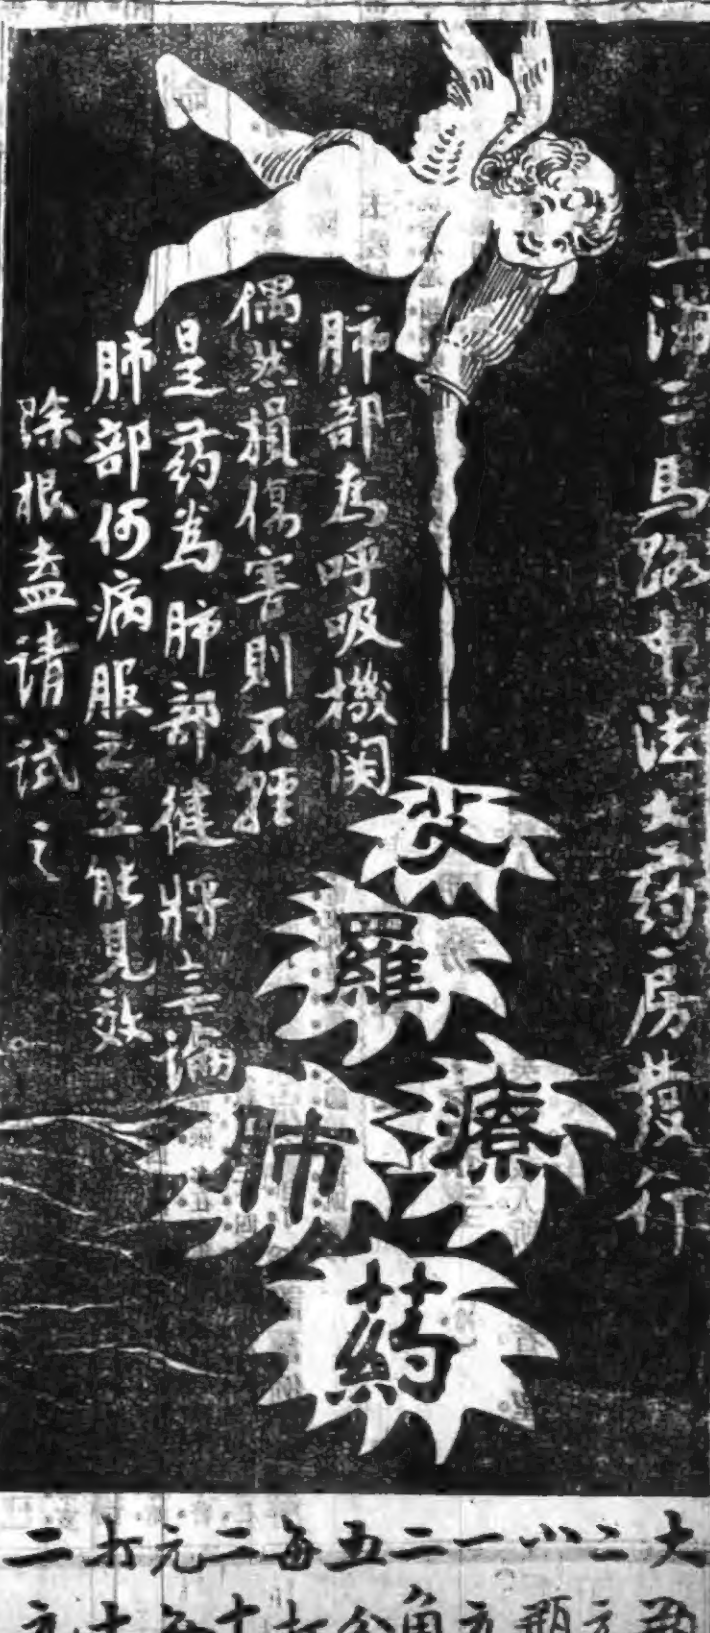 上海三馬路中法大药房發行
艾羅療肺药
肺部为呼吸機関
偶然損傷害則不輕
是药为肺部健將言論
肺部何病服之立能見效
除根盍請試之
大二小一二五每二元打二